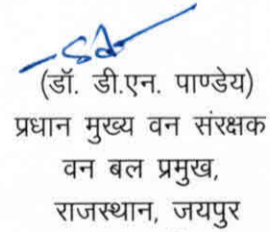 (डॉ. डी.एन. पाण्डेय)
प्रधान मुख्य वन संरक्षक
वन बल प्रमुख,
राजस्थान, जयपुर